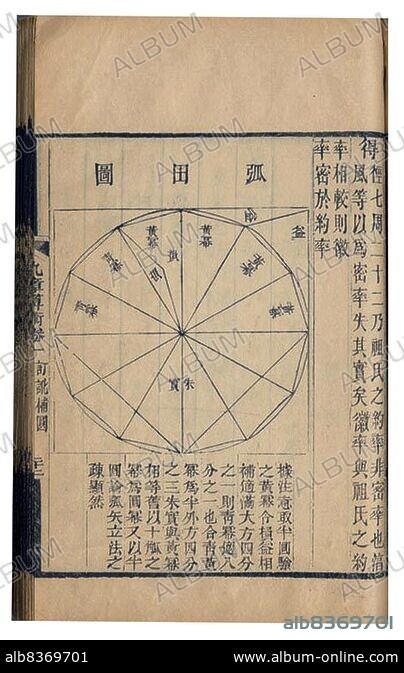 得徑七周二十二乃祖氏之約率非密率也淳
風等以爲密率失其實矣徽率與祖氏之約
率相較則徽
率密於約率
弧田圖
益
益
黃冪
黃冪
青冪
青冪
黃
弧
朱實
據注意取半圓驗
之黃冪合損益相
補適滿大方四分
之一則靑冪總八
分之一也合靑黃
冪爲半外方四分
之三朱實與黃冪
相等舊以十觚之
冪爲圓冪又以半
圓論弧矢立法之
疎顯然
九章算術卷一 訂譌補圖
ALBUM
alb8369701
alb8369701
www.album-online.com